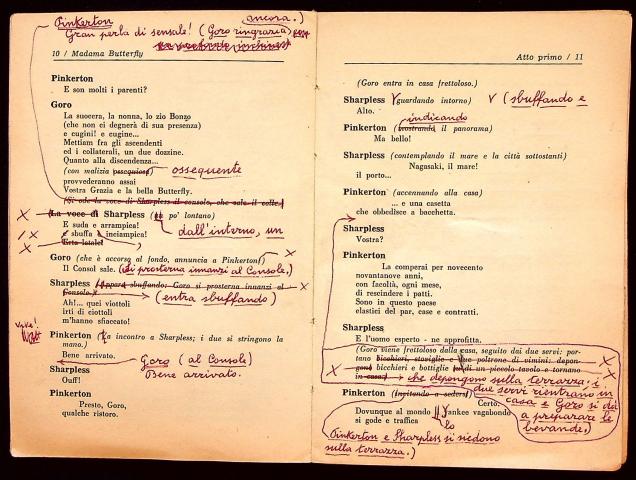 Pinkerton
Gran perla di sensale! (Goro ringrazia ancora.)
10 / Madama Butterfly
Pinkerton
E son molti i parenti?
Goro
La suocera, la nonna, lo zio Bonzo
(che non ci degnerà di sua presenza)
e cugini! e cugine...
Mettiam fra gli ascendenti
ed i collaterali, un due dozzine.
Quanto alla discendenza...
(con malizia ossequiosa) ossequente
provvederanno assai
Vostra Grazia e la bella Butterfly.
(Si ode la voce di Sharpless il console, che sale il colle.)
La voce di Sharpless (un po' lontano)
E suda e arrampica!
sbuffa, inciampica! dall'interno, un
Goro (che è accorso al fondo, annuncia a Pinkerton)
Il Consol sale. (Si prosterna innanzi al Console.)
Sharpless (Appare sbuffando; Goro si prosterna innanzi al
Console.) (entra sbuffando)
Ah!... quei viottoli
irti di ciottoli
m'hanno sfiaccato!
Pinkerton (va incontro a Sharpless; i due si stringono la
mano.)
Bene arrivato.
Goro (al Console)
Sharpless Bene arrivato.
Ouff!
Pinkerton
Presto, Goro,
qualche ristoro.
Atto primo / 11
(Goro entra in casa frettoloso.)
Sharpless (guardando intorno) (sbuffando e
Alto.
indicando
Pinkerton (mostrando il panorama)
Ma bello!
Sharpless (contemplando il mare e la città sottostanti)
Nagasaki, il mare!
il porto...
Pinkerton (accennando alla casa)
... e una casetta
che obbedisce a bacchetta.
Sharpless
Vostra?
Pinkerton
La comperai per novecento
novantanove anni,
con facoltà, ogni mese,
di rescindere i patti.
Sono in questo paese
elastici del par, case e contratti.
Sharpless
E l'uomo esperto - ne approfitta.
(Goro viene frettoloso dalla casa, seguito dai due servi: por-
tano bicchieri, staviglie e due poltrone di vimini: depon-
gono bicchieri e bottiglie su di un piccolo tavolo e tornano
in casa) che depongono sulla terrazza; i
due servi rientrano in
casa e Goro si dà
a preparare le
bevande.)
Pinkerton (Invitando a sedersi)
Certo.
Dovunque al mondo lo Yankee vagabondo
si gode e traffica
Pinkerton e Sharpless si siedono
sulla terrazza.)